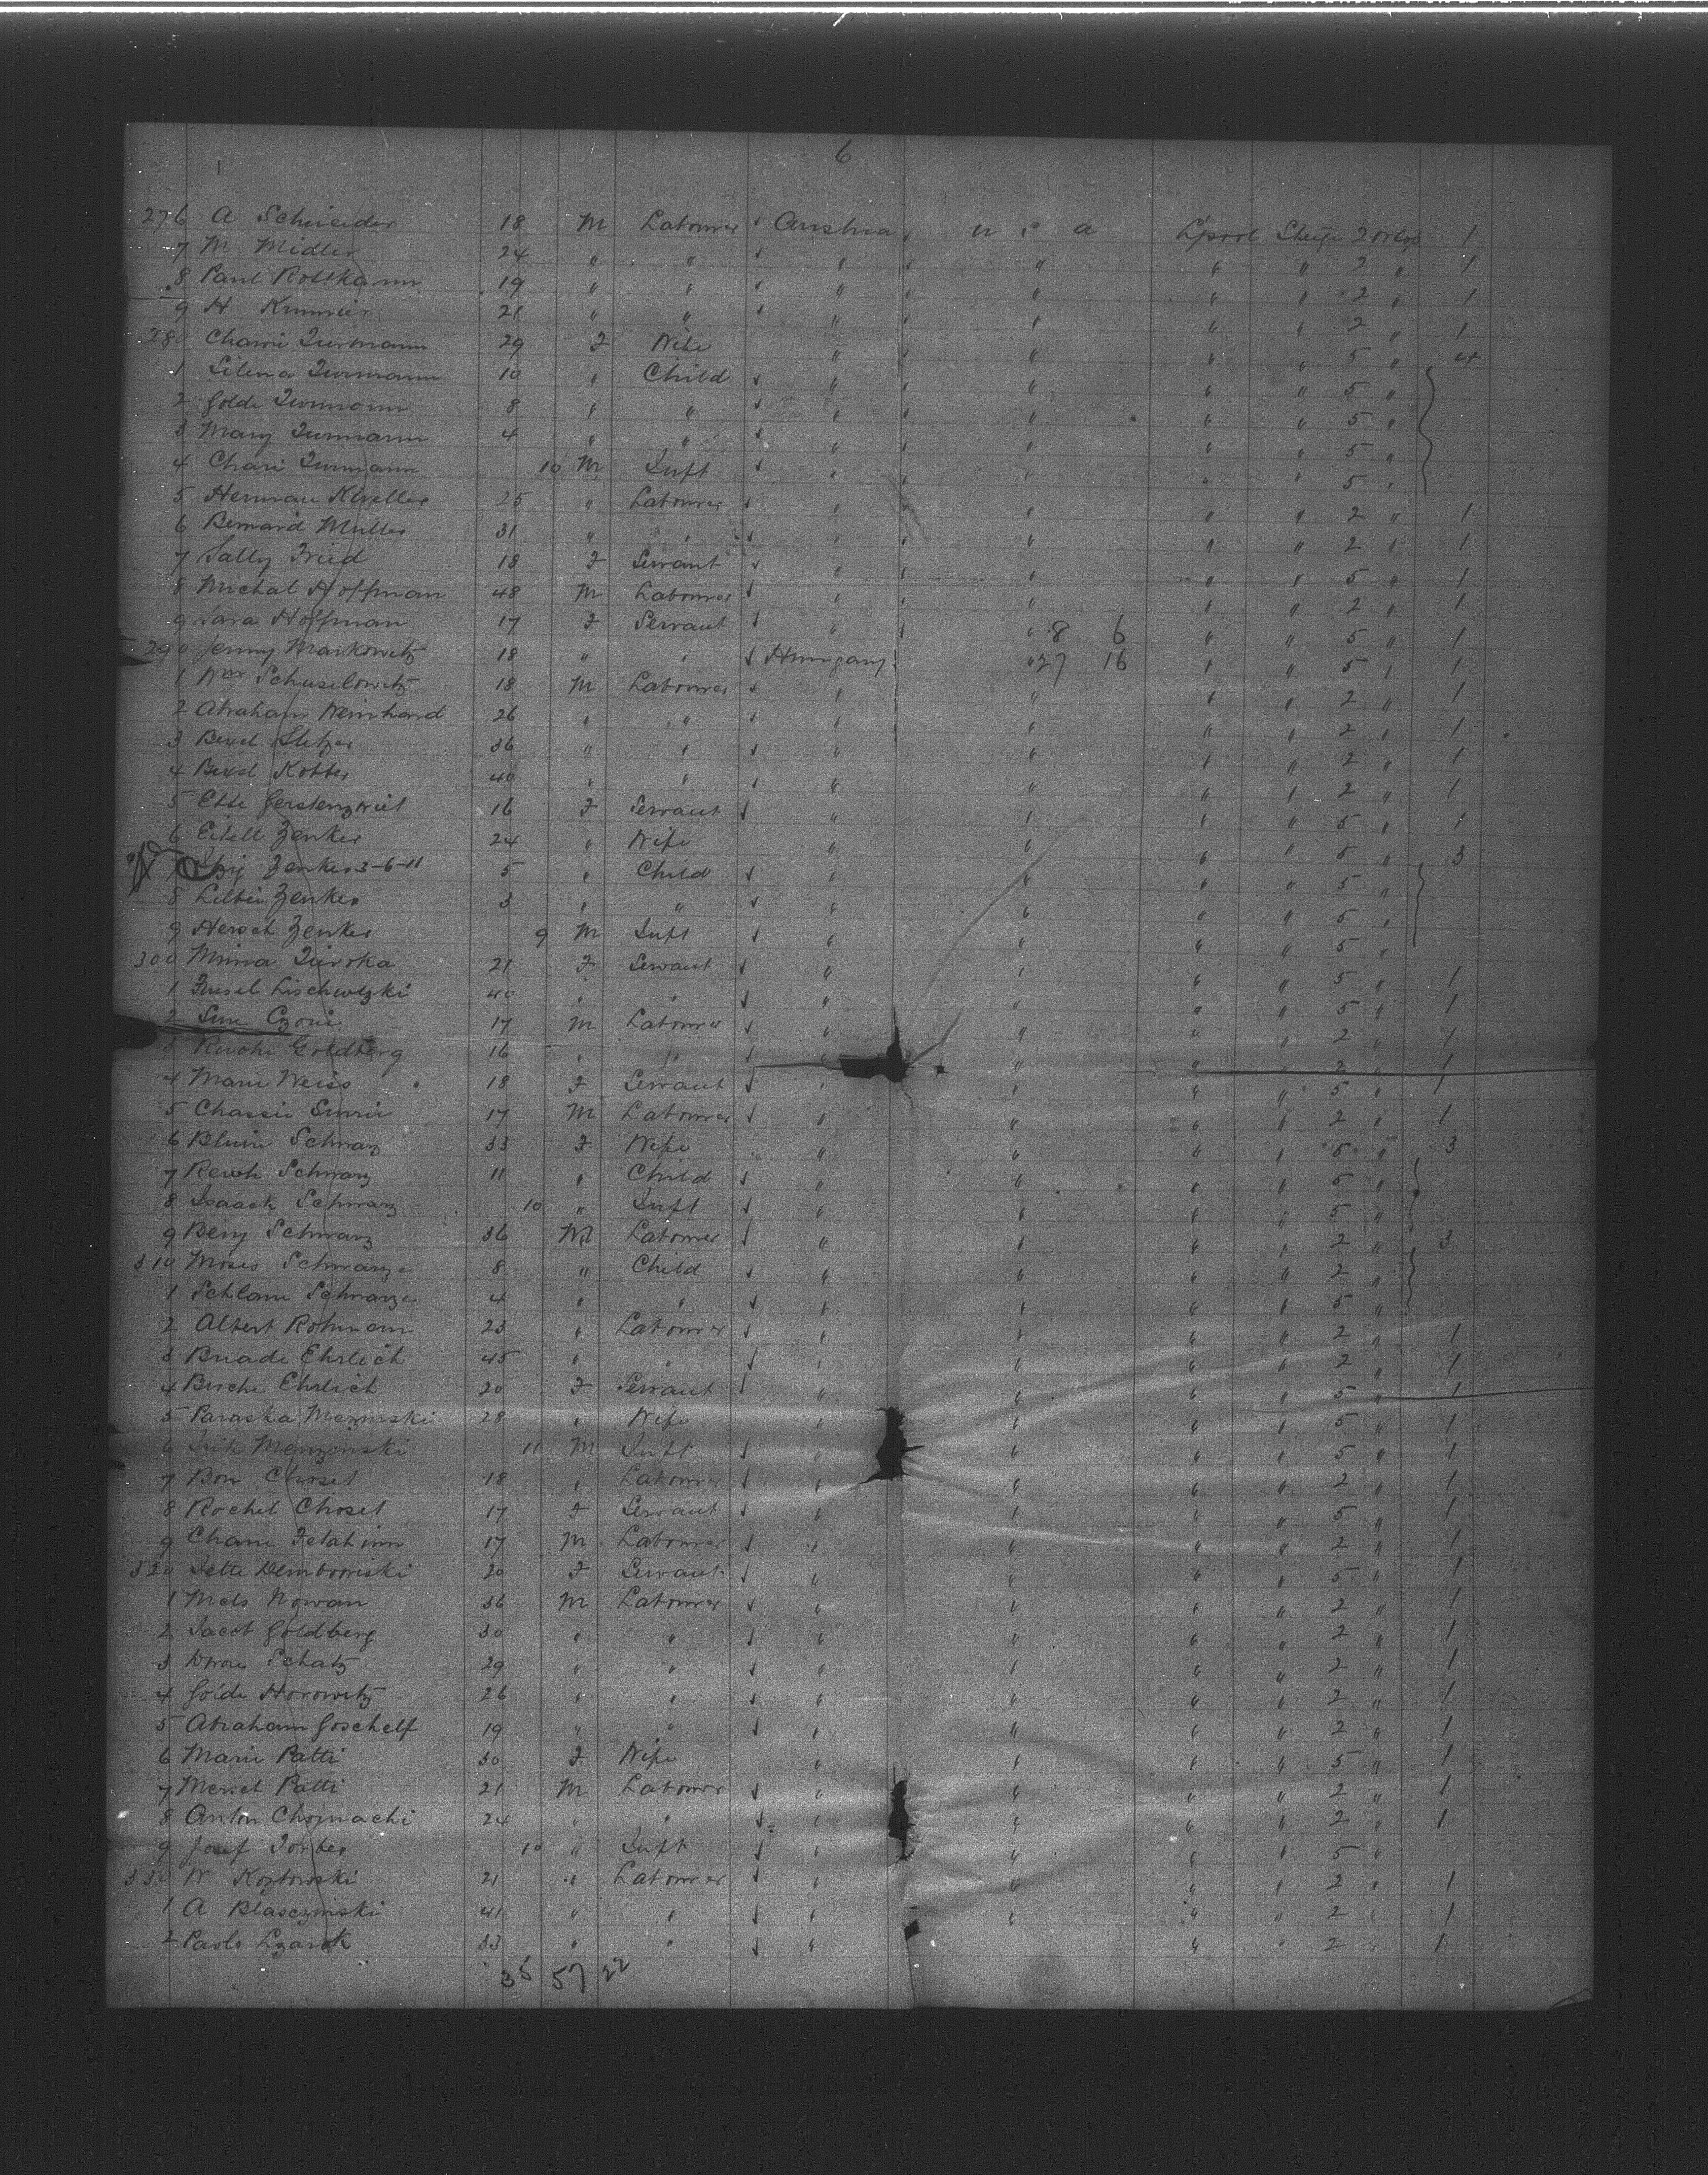 6
276 A Schneider 18 M Labourer Austria U S A L'pool Steige 2 orlop 1
7 M Midler 24 " " " " " " 2 " 1
8 Paul Rottkamm 19 " " " " " " 2 " 1
9 H 21 " " " " " " 2 " 1
280 Charri Turmann 29 F Wife " " " " 5 " 4
1 Silena Turmann 10 " Child " " " " 5 "
2 Golde Turmann 8 " " " " " " 5 "
3 Mary Turmann 4 " " " " " " 5 "
4 Chari Turmann 10 M Inft " " " " 5 "
5 Herman Kweller 25 " Labourer " " " " 2 " 1
6 Bernard Muller 31 " " " " " " 2 " 1
7 Sally Fried 18 F Servant " " " " 5 " 1
8 Michal Hoffman 48 M Labourer " " " " 2 " 1
9 Sara Hoffman 17 F Servant " " 8 6 " " 5 " 1
290 Jenny Markowitz 18 " " Hungary " 27 16 " " 5 " 1
1 Wm Schuselowitz 18 M Labourer " " " " 2 " 1
2 Abraham Weinhard 26 " " " " " " 2 " 1
3 Bexel Sletzer 36 " " " " " " 2 " 1
4 Bexel Kotter 40 " " " " " " 2 " 1
5 Ette Gerstenzweit 16 F Servant " " " " 5 " 1
6 Eitell Zenker 24 " Wife " " " " 5 " 3
7 Zenker 3-6-11 5 " Child " " " " 5 "
8 Leibei Zenker 3 " " " " " " 5 "
9 Hersch Zenker 9 M Inft " " " " 5 "
300 Minna Turoka 21 F Servant " " " " 5 " 1
1 Fusel Lischutzki 40 " " " " " " 5 " 1
2 Sim Czoni 17 M Labourer " " " " 2 " 1
3 Rewoke Goldberg 16 " " " " " " 2 " 1
4 Marie Weiss 18 F Servant " " " " 5 " 1
5 Chassie Smrii 17 M Labourer " " " " 2 " 1
6 Blume Schwarz 33 F Wife " " " " 5 " 3
7 Rewek Schwarz 11 " Child " " " " 5 "
8 Isaack Schwarz 10 " Inft " " " " 5 "
9 Benj Schwarz 36 M Labourer " " " " 2 " 3
310 Moses Schwarze 8 " Child " " " " 2 "
1 Schlam Schwarze 4 " " " " " " 5 "
2 Albert Rohmann 23 " Labourer " " " " 2 " 1
3 Bruade Ehrlich 45 " " " " " " 2 " 1
4 Busche Ehrlich 20 F Servant " " " " 5 " 1
5 Paraska Mezmski 28 " Wife " " " " 5 " 1
6 Irik Menzinski 11 M Inft " " " " 5 " 1
7 Bon Choset 18 " Labourer " " " " 2 " 1
8 Rochel Choset 17 F Servant " " " " 5 " 1
9 Cham Felahinn 17 M Labourer " " " " 2 " 1
320 Jette Dembowski 20 F Servant " " " " 5 " 1
1 Mels Nowan 36 M Labourer " " " " 2 " 1
2 Jacob Goldberg 30 " " " " " " 2 " 1
3 Dwore Schatz 29 " " " " " " 2 " 1
4 Goide Horowitz 26 " " " " " " 2 " 1
5 Abraham Goschelf 19 " " " " " " 2 " 1
6 Marie Patti 30 F Wife " " " " 5 " 1
7 Mersch Patti 21 M Labourer " " " " 2 " 1
8 Anton Chojnachi 24 " " " " " " 2 " 1
9 Josef Torber 10 " Inft " " " " 5 "
330 W Kozlowski 21 " Labourer " " " " 2 " 1
1 A Blasczinski 41 " " " " " " 2 " 1
2 Pavls Lzarck 33 " " " " " 2 " 1
35 57 22